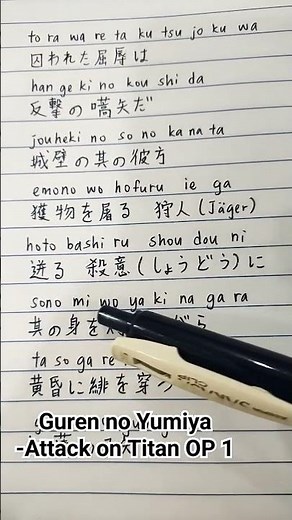 to ra wa re ta ku tsu jo ku wa
囚われた屈辱は
han ge ki no kou shi da
反撃の嚆矢だ
jouheki no so no ka na ta
城壁の其の彼方
emono wo hofuru ie ga
獲物を屠る 狩人(Jäger)
hoto bashi ru shou dou ni
迸る 殺意(しょうどう)に
sono mi wo ya ki na ga ra
其の身を がら
ta so ga re
黄昏に緋を穿つ
Guren no Yumiya
-Attack on Titan OP 1